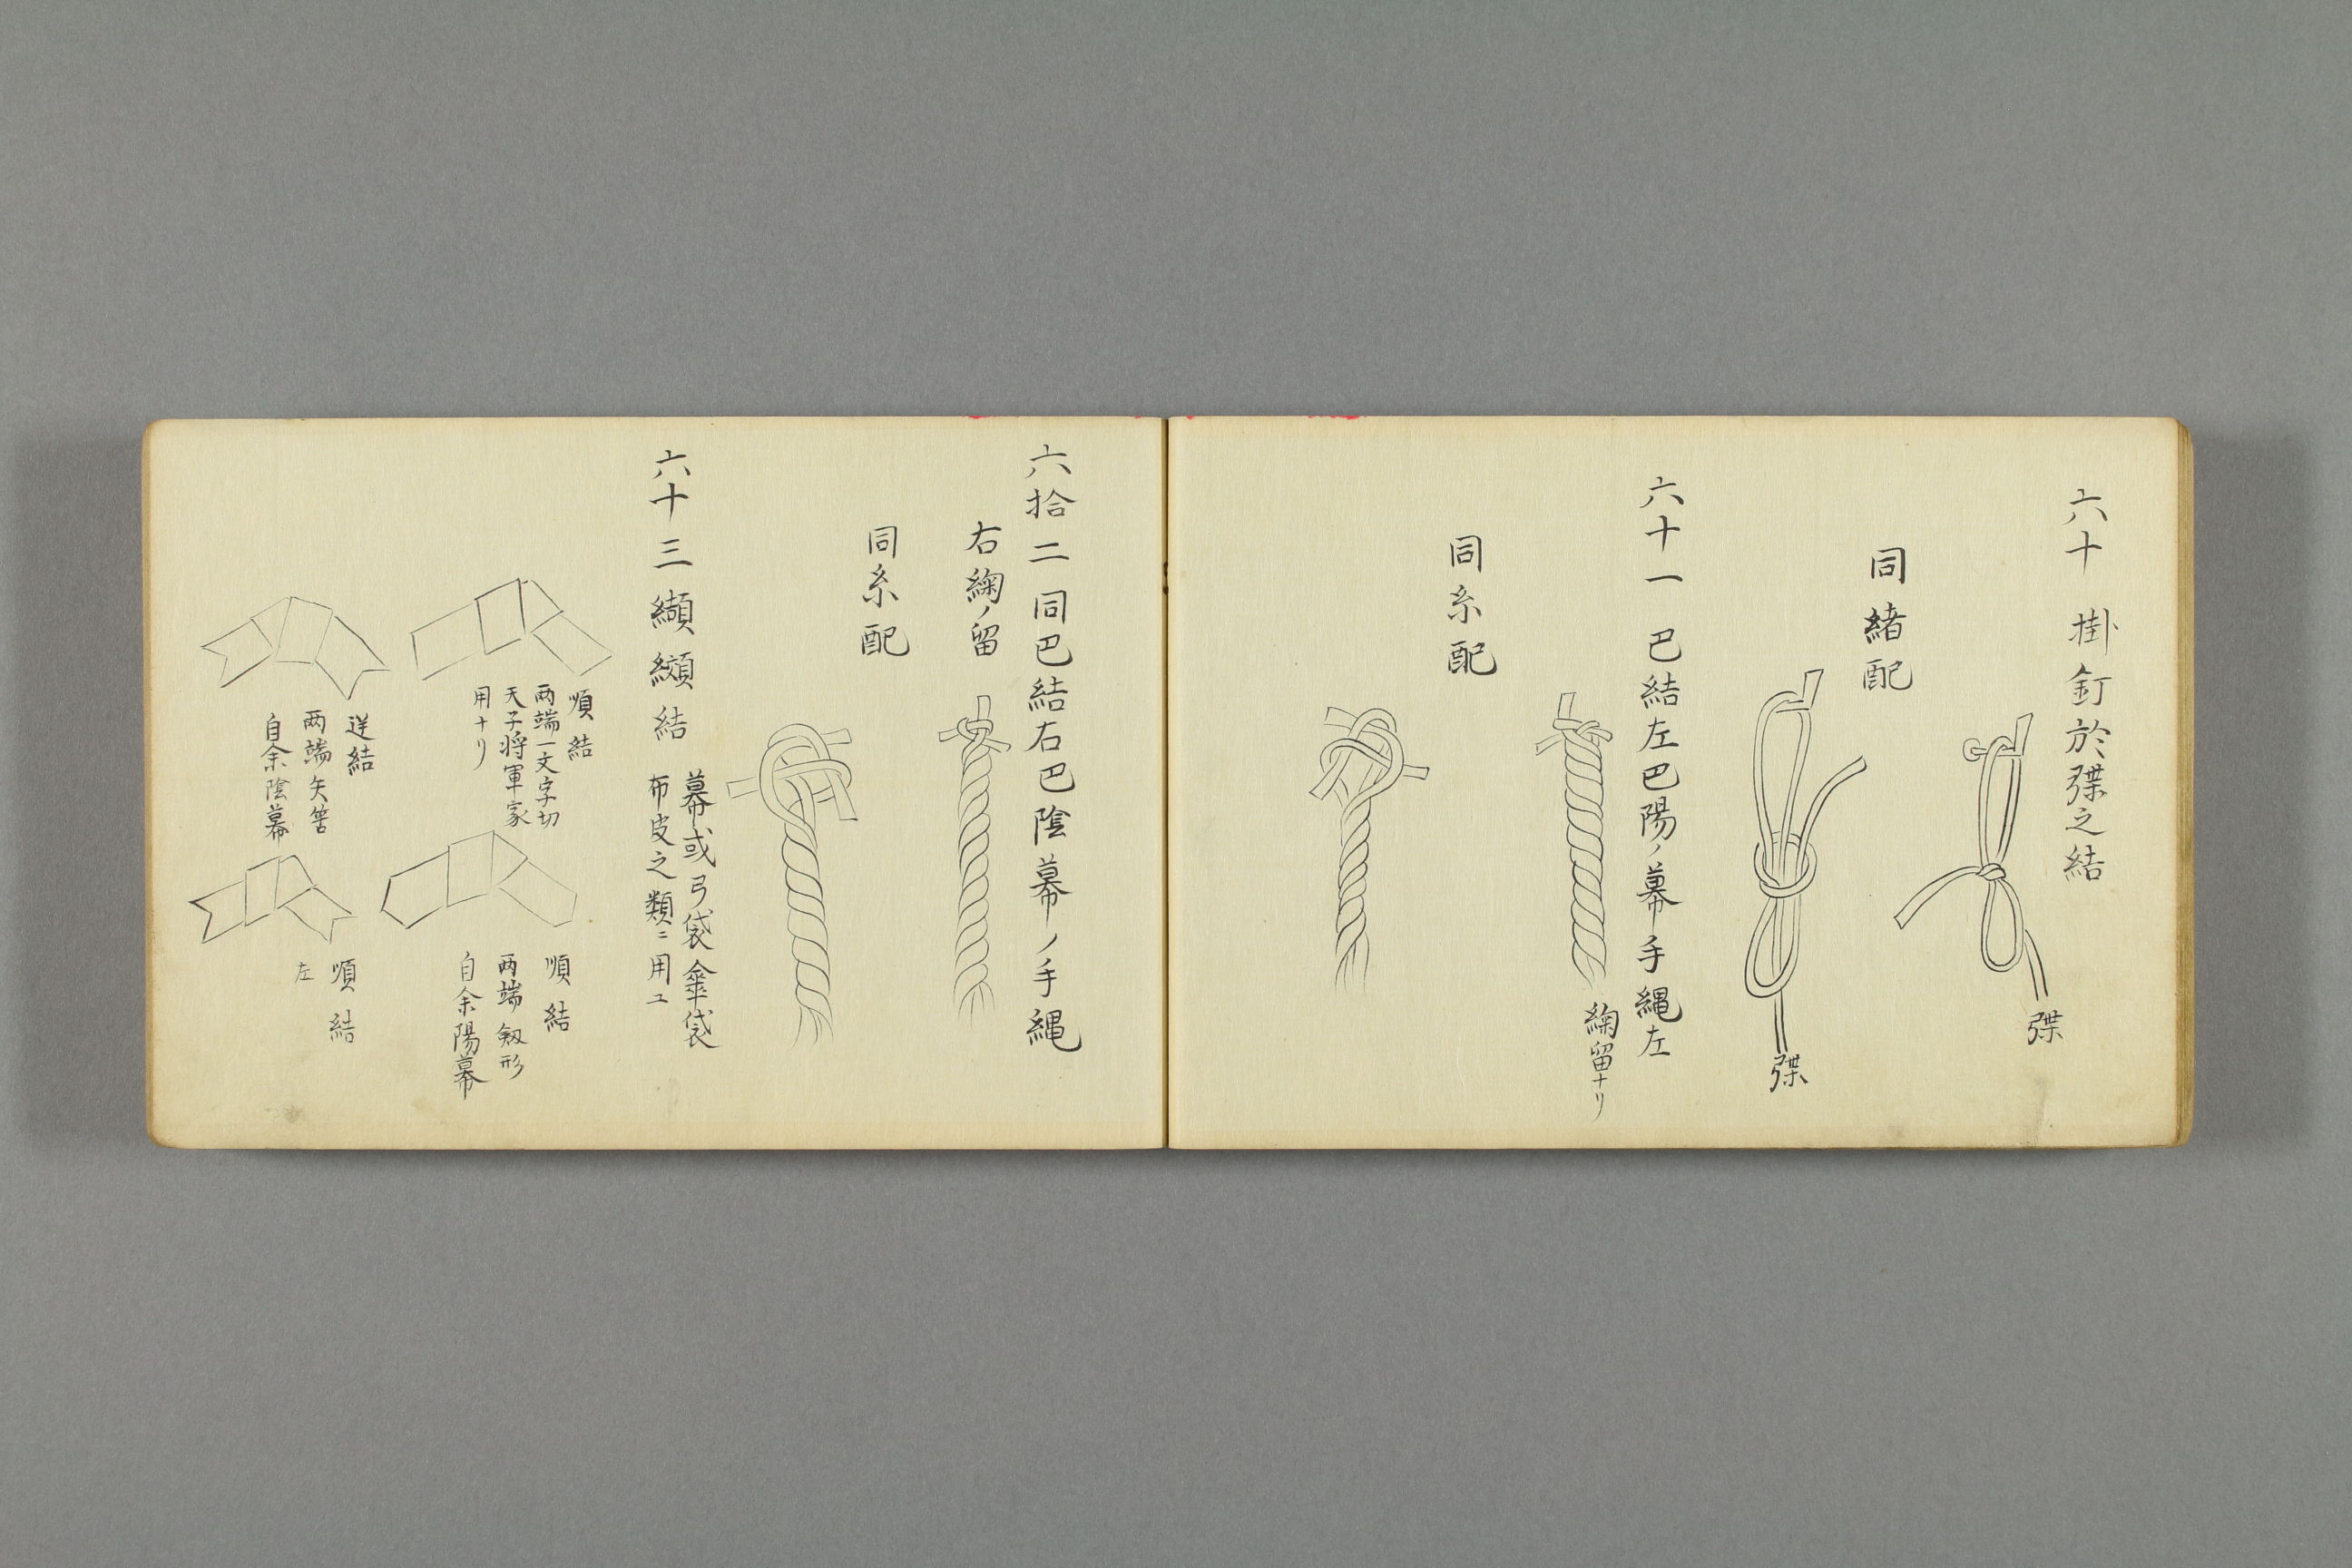 六十 掛釘於弽之結
弽
同緒配
弽
六十一 巴結左巴陽ノ幕手縄左
綯留ナリ
同糸配
六拾二同巴結右巴陰幕ノ手縄
右綯ノ留
同糸配
六十三纐纈結
幕或弓袋傘袋
布皮之類ニ用ユ
順結
両端一文字切
天子将軍家
用ナリ
順結
両端剱形
自余陽幕
逆結
両端矢筈
自余陰幕
順結
左